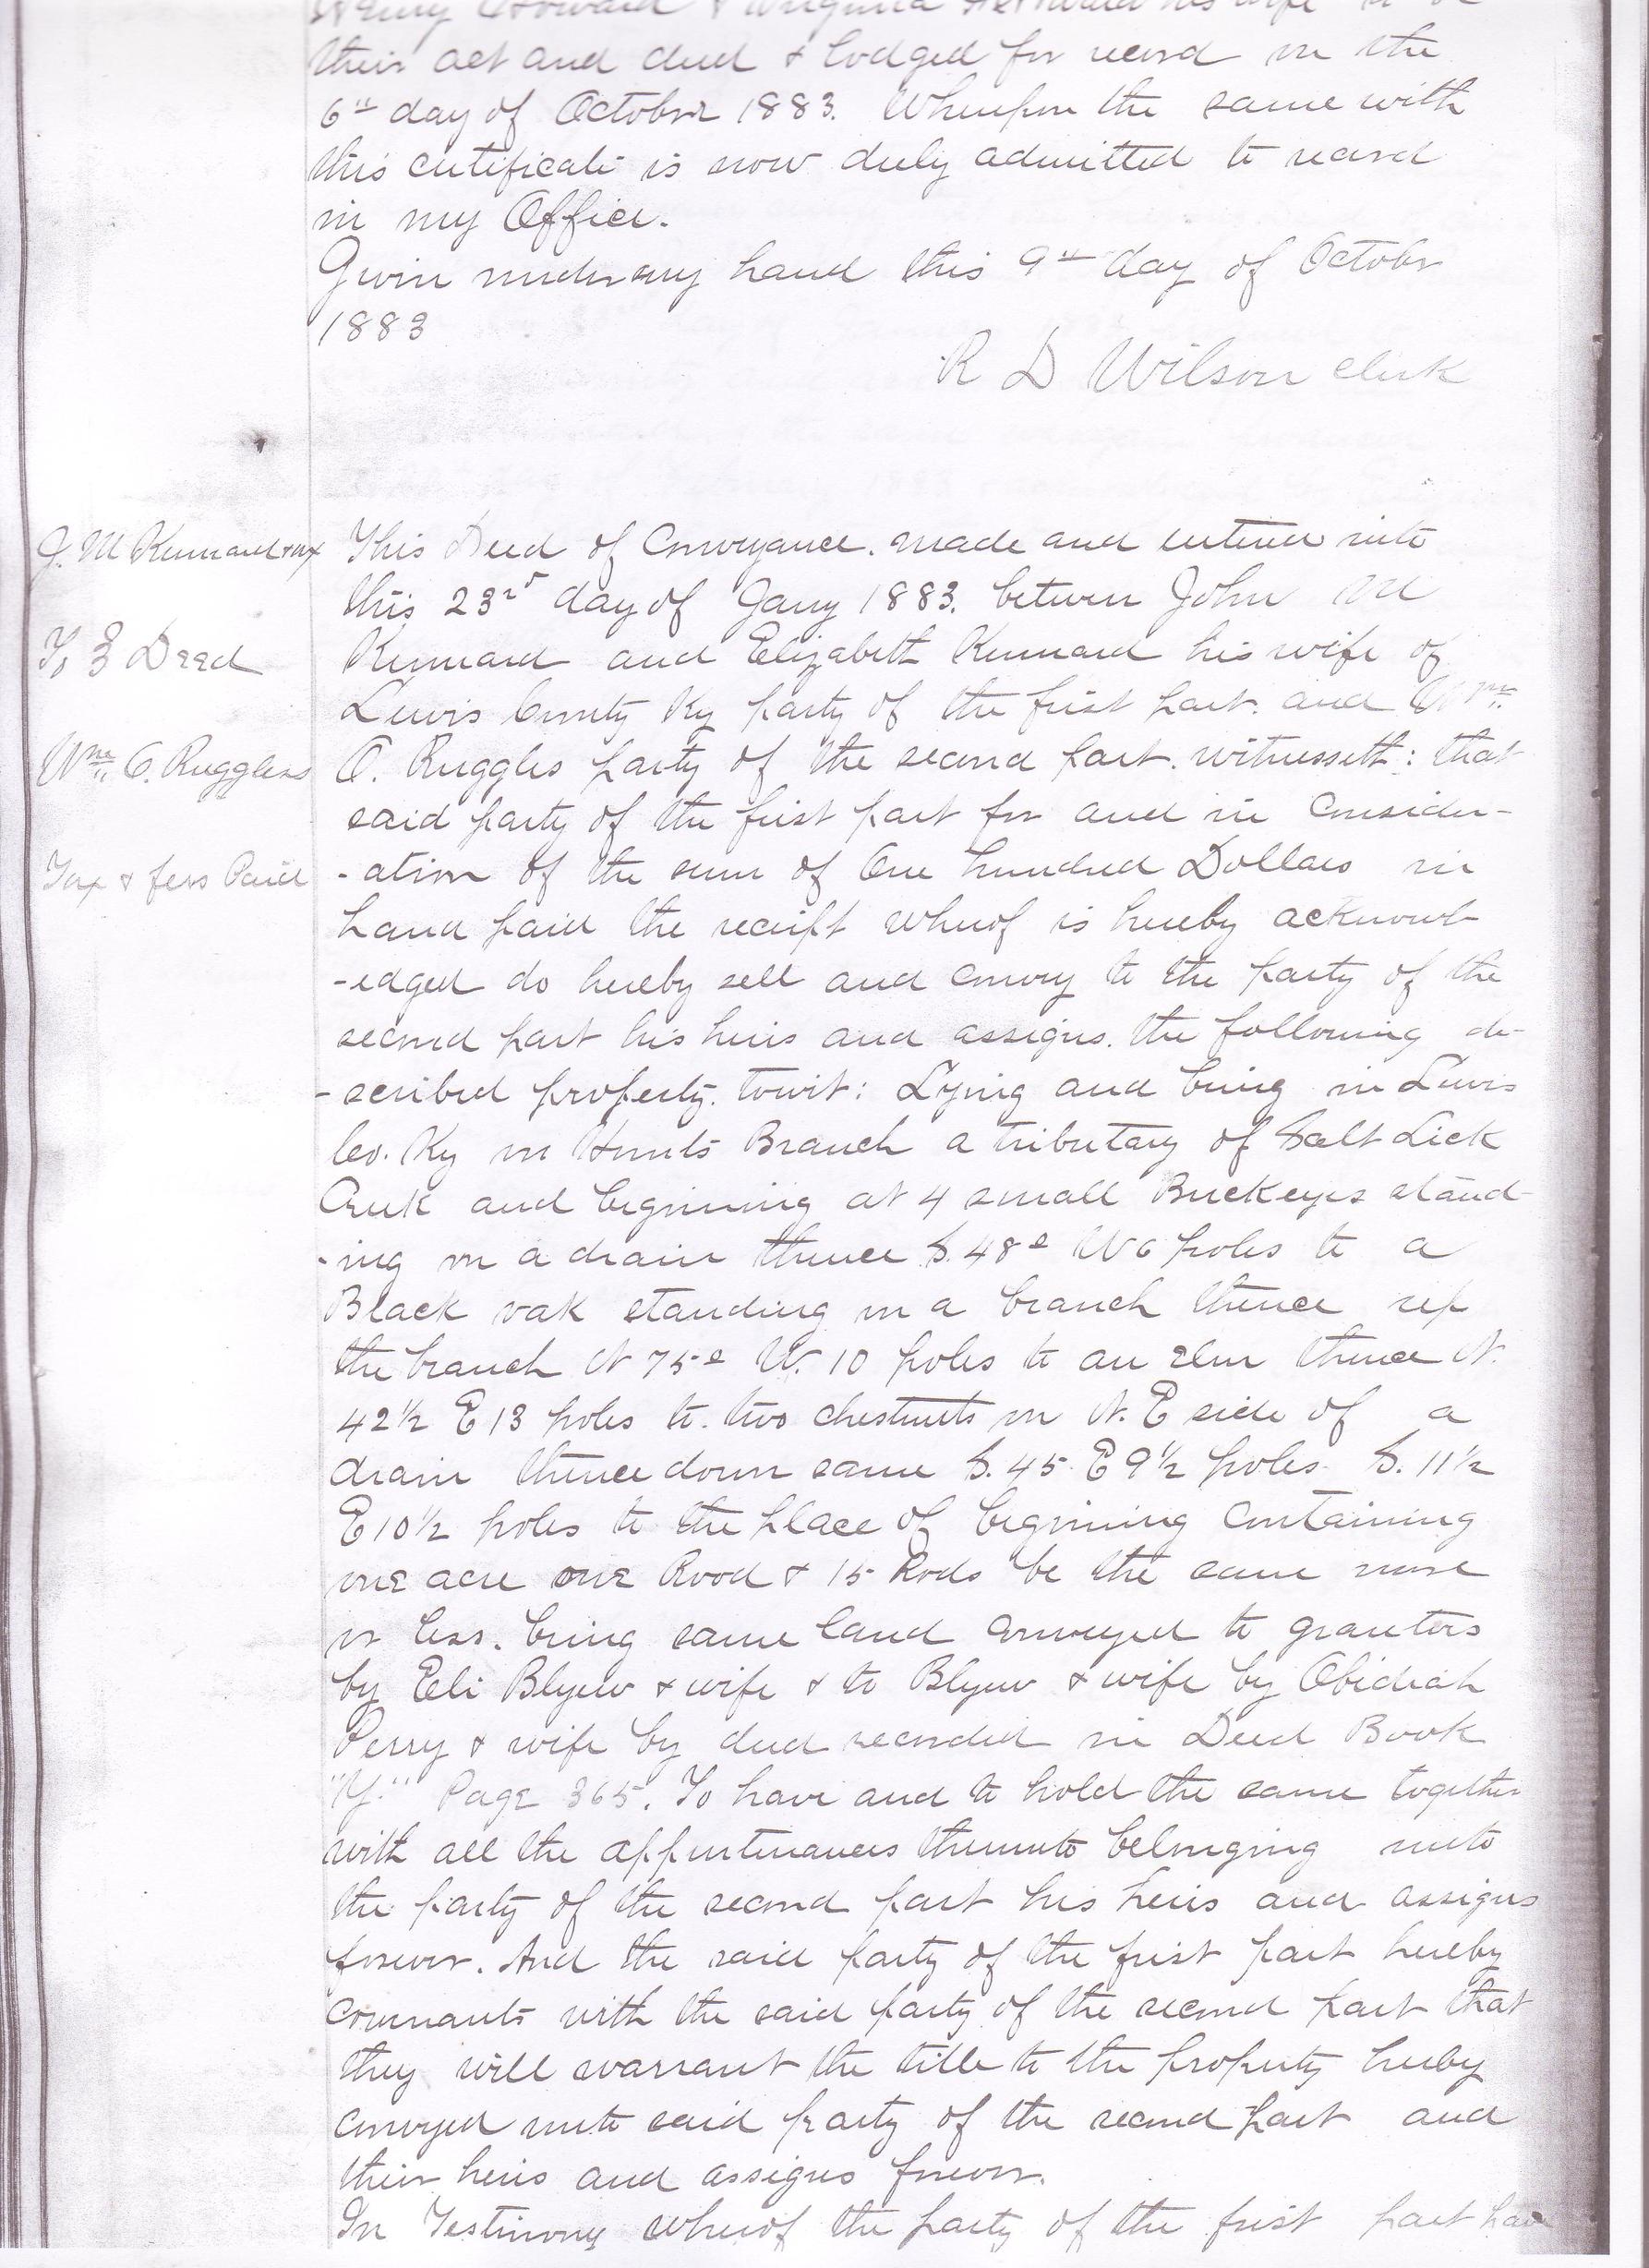 Henry Howard & Virginia Howard his wife to be
their act and deed & lodged for record on the
6th day of October 1883. Whereupon the same with
this certificate is now duly admitted to record
in my Office.
Given under my hand this 9th day of October
1883
R D Wilson Clerk
J. M Kennard & ux
To } Deed
Wm. O. Ruggless
Tax & fees Paid
This Deed of Conveyance. made and entered into
this 23rd day of Jany 1883. between John M
Kennard and Elizabeth Kennard his wife of
Lewis County Ky party of the first part. and Wm.
O. Ruggles party of the second part. witnesseth: that
said party of the first part for and in consider-
-ation of the sum of One hundred Dollars in
hand paid the receipt whereof is hereby acknowl-
-edged do hereby sell and convey to the party of the
second part his heirs and assigns. the following de-
-scribed property. towit: Lying and being in Lewis
Co. Ky on Hunts Branch a tributary of Salt Lick
Creek and beginning at 4 small Buckeyes stand-
-ing on a drain thence S. 48° W 6 poles to a
Black oak standing on a branch thence up
the branch N 75° W. 10 poles to an elm thence N.
42½ E 13 poles to two chestnuts on N. E side of a
drain thence down same S. 45 E 9½ poles S. 11½
E 10½ poles to the place of beginning containing
one acre one Rood & 15 Rods be the same more
or less. being same land conveyed to grantors
by Eli Blyew & wife & to Blyew & wife by Obidiah
Perry & wife by deed recorded in Deed Book
"Y." Page 365. To have and to hold the same together
with all the appurtenances thereunto belonging unto
the party of the second part his heirs and assigns
forever. And the said party of the first part hereby
covenants with the said party of the second part that
they will warrant the title to the property hereby
conveyed unto said party of the second part and
their heirs and assigns forever.
In Testimony whereof the party of the first part have